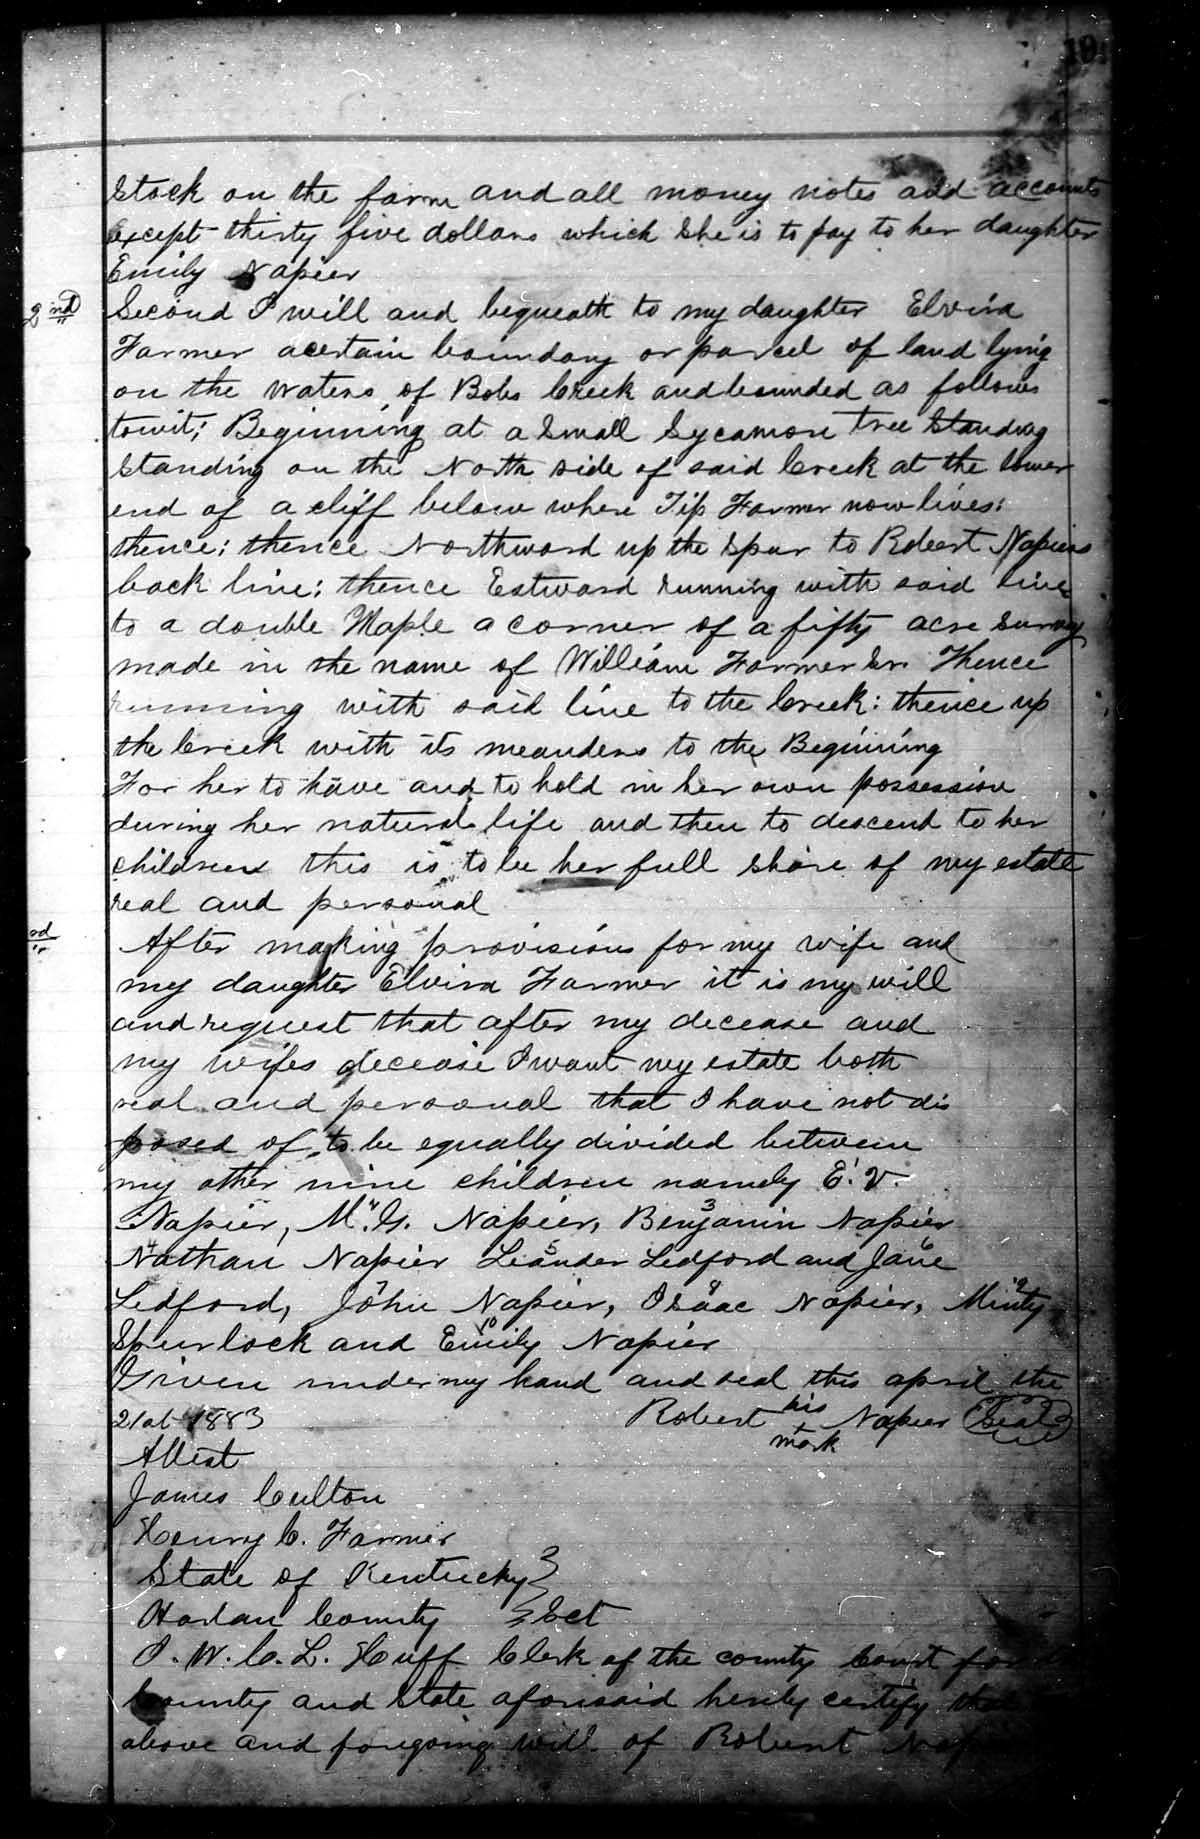 19
Stock on the farm and all money notes and accounts
Except thirty five dollars which She is to pay to her daughter
Emily Napier
2nd Second I will and bequeath to my daughter Elvira
Farmer acertain boundary or parcel of land lying
on the waters of Bobs Creek and bounded as follows
towit; Beginning at a Small Sycamore tree Standing
Standing on the North side of said Creek at the lower
end of a cliff below where Tip Farmer now lives:
thence; thence Northward up the Spur to Robert Napiers
back line; thence Estward running with said line
to a double Maple a corner of a fifty acre Survey
made in the name of William Farmer Sr. Thence
running with said line to the Creek: thence up
the Creek with its meanders to the Beginning
For her to have and to hold in her own possession
during her natural life and then to descend to her
children this is to be her full Share of my estate
real and personal
rd After making provisions for my wife and
my daughter Elvira Farmer it is my will
and request that after my decease and
my wifes decease I want my estate both
real and personal that I have not dis
posed of to be equally divided between
my other nine children namely E. V.
Napier, M. G. Napier, Benjamin Napier
Nathan Napier Leander Ledford and Jane
Ledford, John Napier, Isaac Napier, Minty
Spurlock and Emily Napier
Given under my hand and seal this april the
21st 1883 Robert his mark Napier Seal
Attest
James Culton
Henry C. Farmer
State of Kentucky
Harlan County Sct
I. W. C. L. Huff Clerk of the county Court for
County and State aforesaid hereby certify that
above and foregoing will of Robert Nap